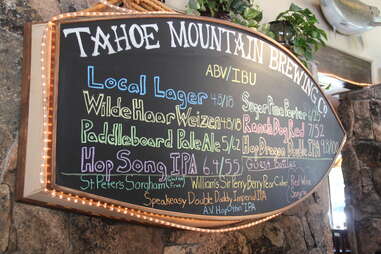 TAHOE MOUNTAIN BREWING CO.
ABV/IBU
Local Lager 4.8/18
WildeHaar Weizen 4.8/18
Paddleboard Pale Ale 5/2
Hop Song IPA 6.4/55
Sugar Pine Porter 6/25
Ranch Dog Red 7/52
Hop Dreams Double IPA
Guest Bottles
St. Peters Sorgham
Williams Sir Perry Berry Pear Cider
Red Wine
Speakeasy Double Daddy Imperial IPA
IPA